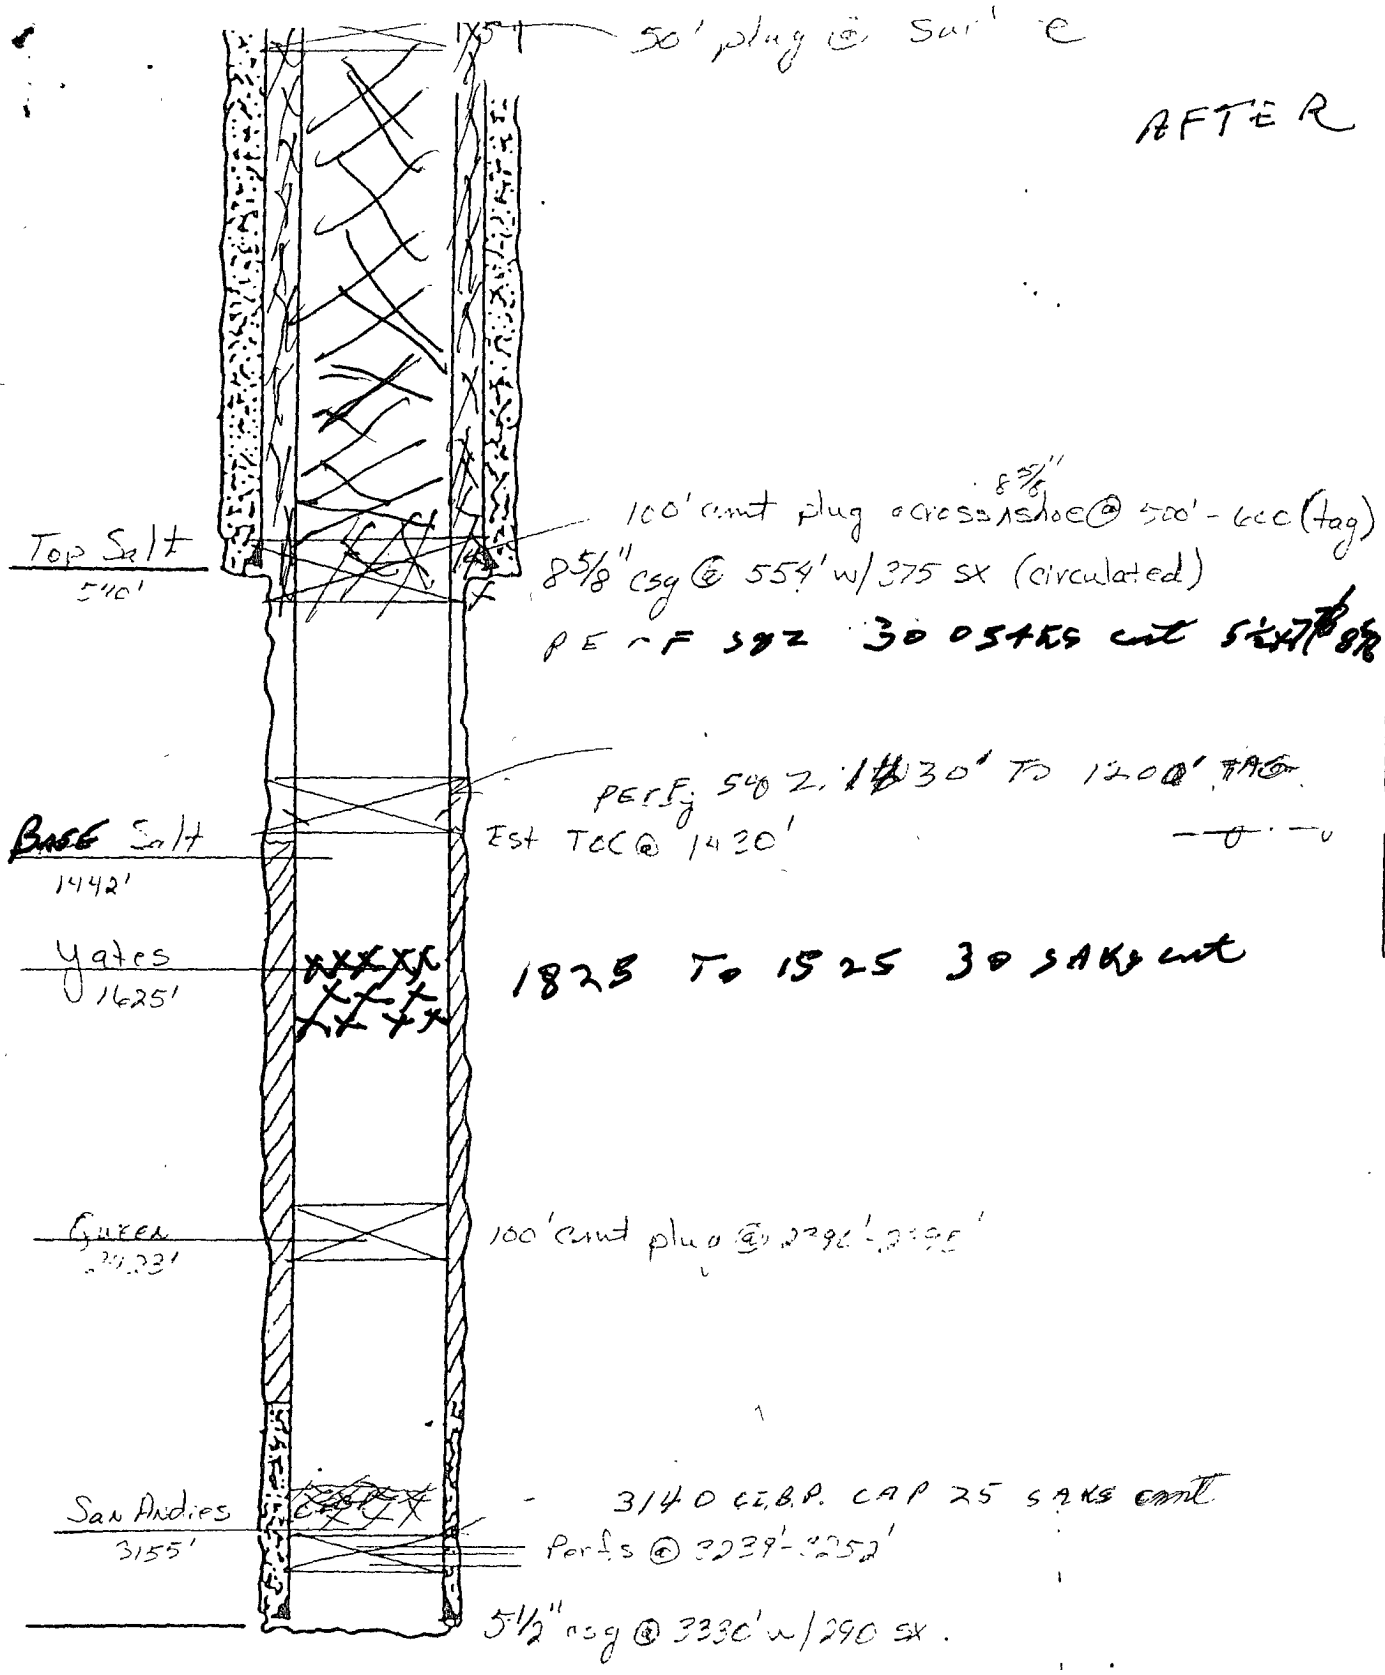 50' plug @
AFTER
8 5/8"
100' cmt plug across shoe @ 500'-600 (tag)
Top Salt
540'
8 5/8" csg @ 554' w/375 sx (circulated)
PErF sqz 300 SAKS cmt
PErf; sqz. 1430' To 1200' TAG
BASE Salt
1442'
Est TOC @ 1430'
Yates
1625'
1825 To 1525 30 SAKS cmt
Queen
100' cmt plug @
San Andres
3155'
3140 C.I.B.P. CAP 25 SAKS cmt
Perfs @ 3239'-3252'
5 1/2" csg @ 3330' w/290 sx.